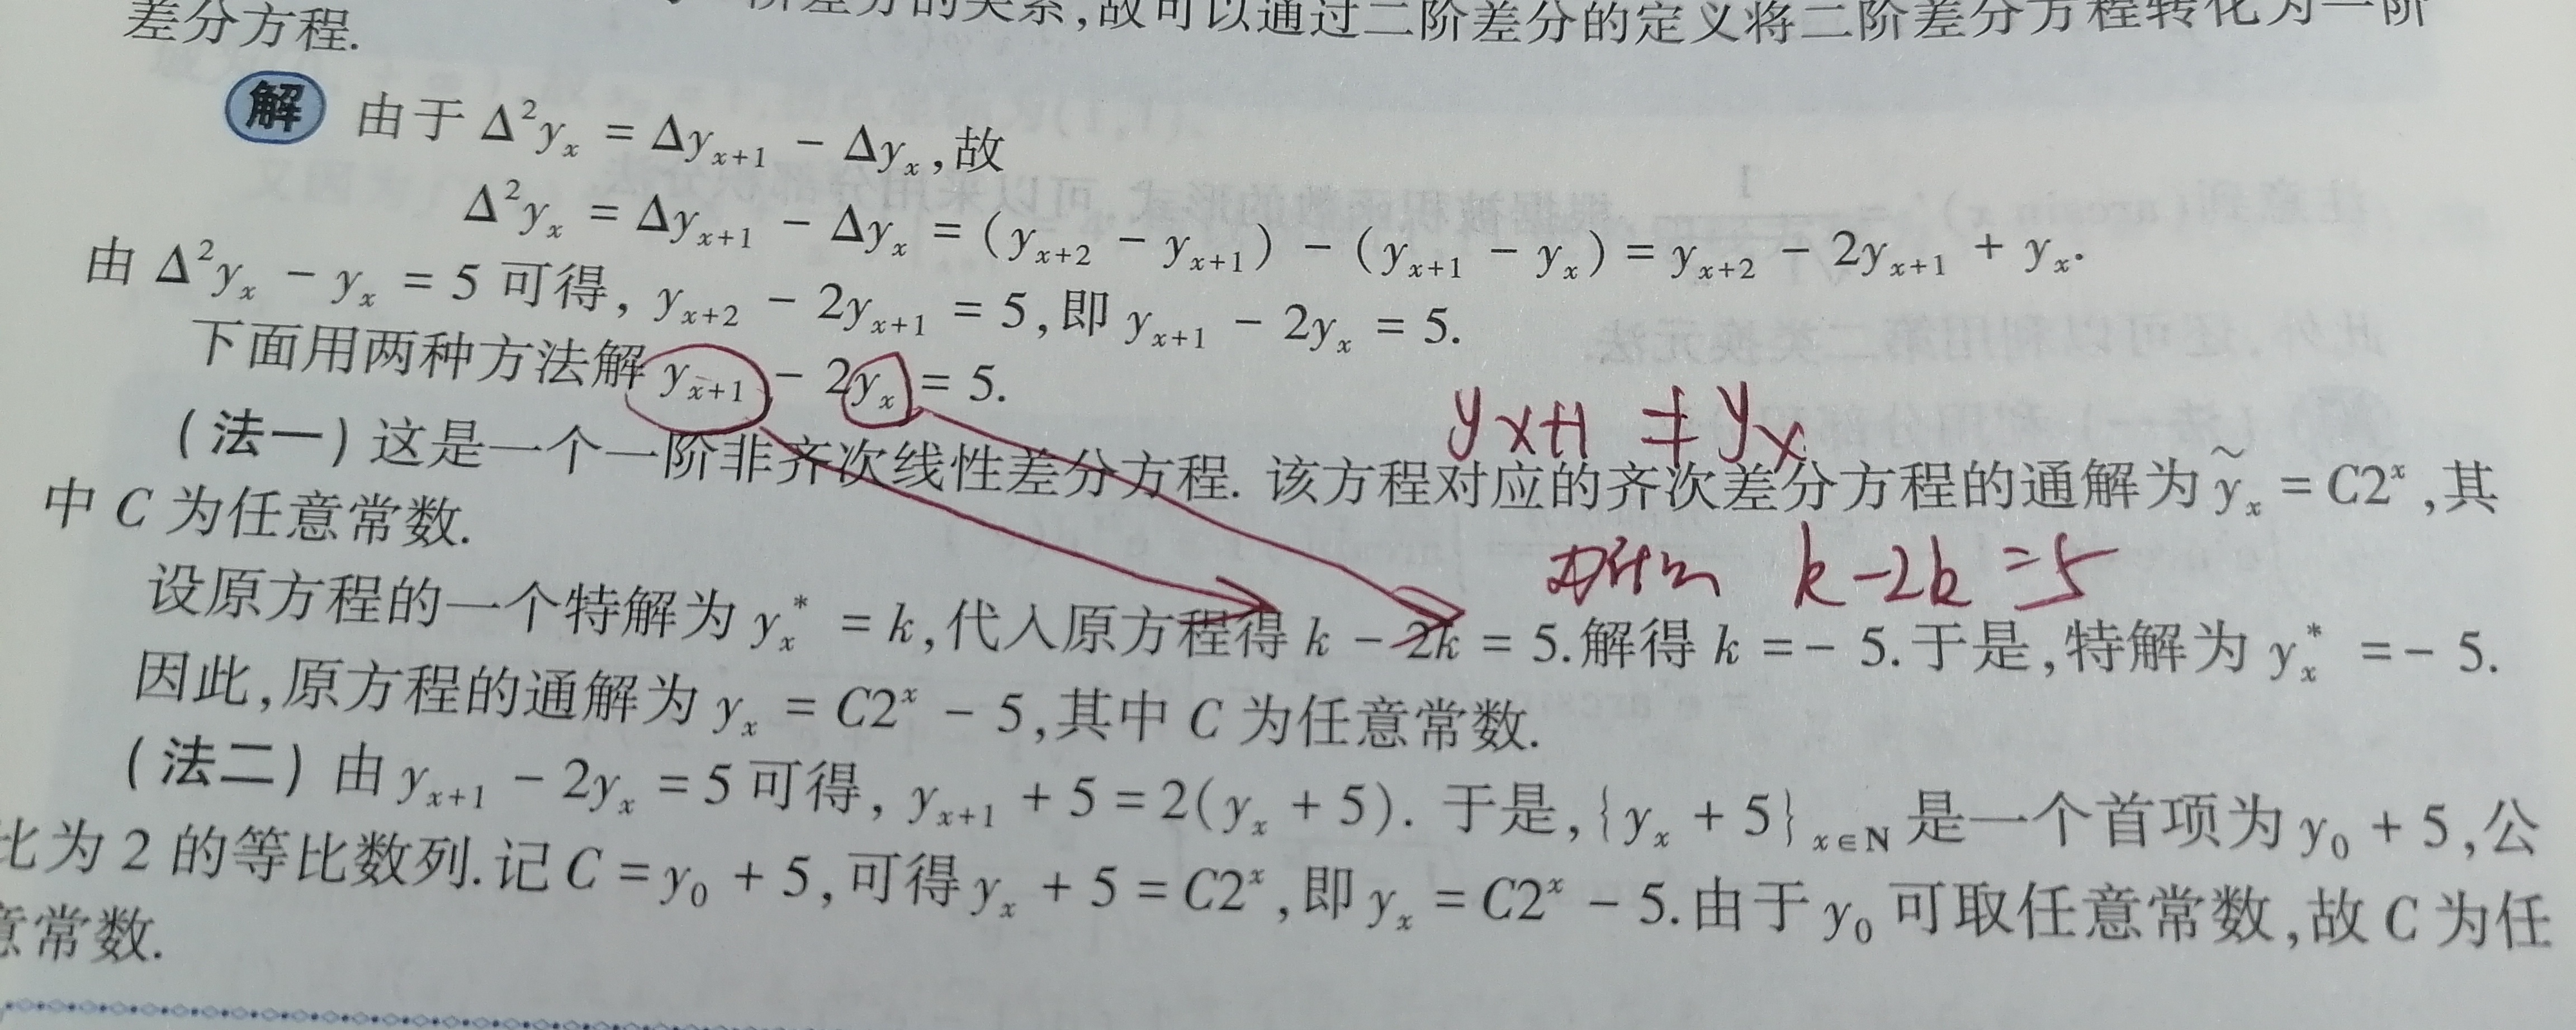 阶差分的关系,故可以通过二阶差分的定义将二阶差分方程转化为一阶
差分方程.
解 由于 Δ²yₓ = Δyₓ₊₁ − Δyₓ,故
Δ²yₓ = Δyₓ₊₁ − Δyₓ = (yₓ₊₂ − yₓ₊₁) − (yₓ₊₁ − yₓ) = yₓ₊₂ − 2yₓ₊₁ + yₓ.
由 Δ²yₓ − yₓ = 5 可得, yₓ₊₂ − 2yₓ₊₁ = 5,即 yₓ₊₁ − 2yₓ = 5.
下面用两种方法解 yₓ₊₁ − 2yₓ = 5.
yₓ₊₁ ≠ yₓ
(法一) 这是一个一阶非齐次线性差分方程. 该方程对应的齐次差分方程的通解为 ỹₓ = C2ˣ ,其
中 C 为任意常数.
k − 2k = 5
设原方程的一个特解为 yₓ* = k,代入原方程得 k − 2k = 5.解得 k = − 5.于是,特解为 yₓ* = − 5.
因此,原方程的通解为 yₓ = C2ˣ − 5,其中 C 为任意常数.
(法二) 由 yₓ₊₁ − 2yₓ = 5 可得, yₓ₊₁ + 5 = 2(yₓ + 5). 于是,{yₓ + 5}ₓ∈N 是一个首项为 y₀ + 5,公
比为 2 的等比数列.记 C = y₀ + 5,可得 yₓ + 5 = C2ˣ ,即 yₓ = C2ˣ − 5.由于 y₀ 可取任意常数,故 C 为任
意常数.